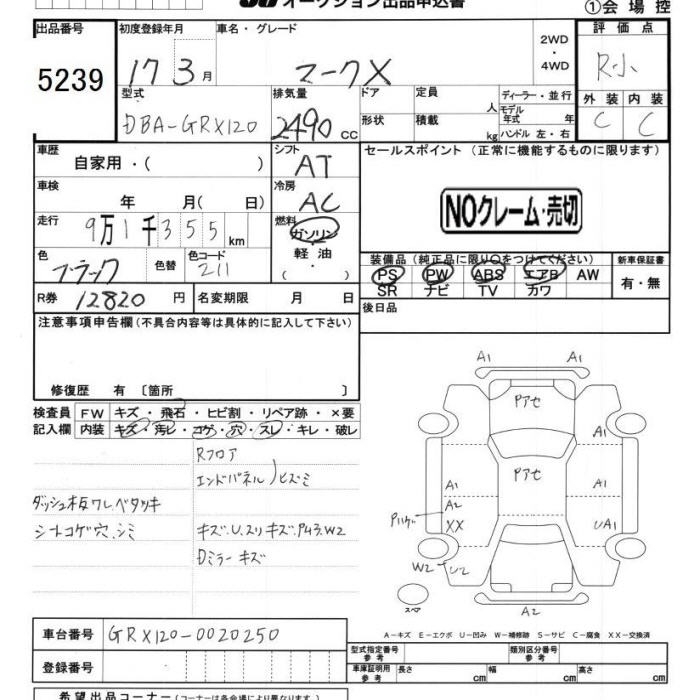 オークション出品申込書
①会場控
出品番号 5239
初度登録年月 17 3月
車名・グレード マークX
2WD・4WD
評価点 R小
外装 C 内装 C
型式 DBA-GRX120
排気量 2490 cc
ドア 形状
定員 人 積載 kg
ディーラー・並行
モデル年式 年
ハンドル 左・右
車歴 自家用・( )
シフト AT
セールスポイント (正常に機能するものに限ります)
車検 年 月( 日)
冷房 AC
NOクレーム・売切
走行 9万1千355km
燃料 ガソリン 軽油 ( ・ )
色 ブラック 色替 色コード 211
装備品(純正品に限り○をつけてください)
PS PW ABS エアB AW
SR ナビ TV カワ
新車保証書 有・無
R券 12820円 名変期限 月 日
後日品
注意事項申告欄(不具合内容等は具体的に記入して下さい)
修復歴 有 〔箇所 〕
検査員記入欄
FW キズ・飛石・ヒビ割・リペア跡・×要
内装 キズ・汚レ・コゲ・穴・スレ・キレ・破レ
Rフロア
エンドパネル)ヒズミ
ダッシュ板ワレ.ベタツキ
シートコゲ穴.シミ
キズ.U.スリキズ.P43.W2
Dミラーキズ
A1
Pアセ
A1
Pアセ
A1
A2
XX
UA1
W2
U2
A2
スペア
A-キズ E-エクボ U-凹み W-補修跡 S-サビ C-腐食 XX-交換済
車台番号 GRX120-0020250
登録番号
型式指定番号 参考
類別区分番号 参考
車庫証明用 参考 長さ cm 幅 cm 高さ cm
希望出品コーナー(コーナーは各会場により異なります。)